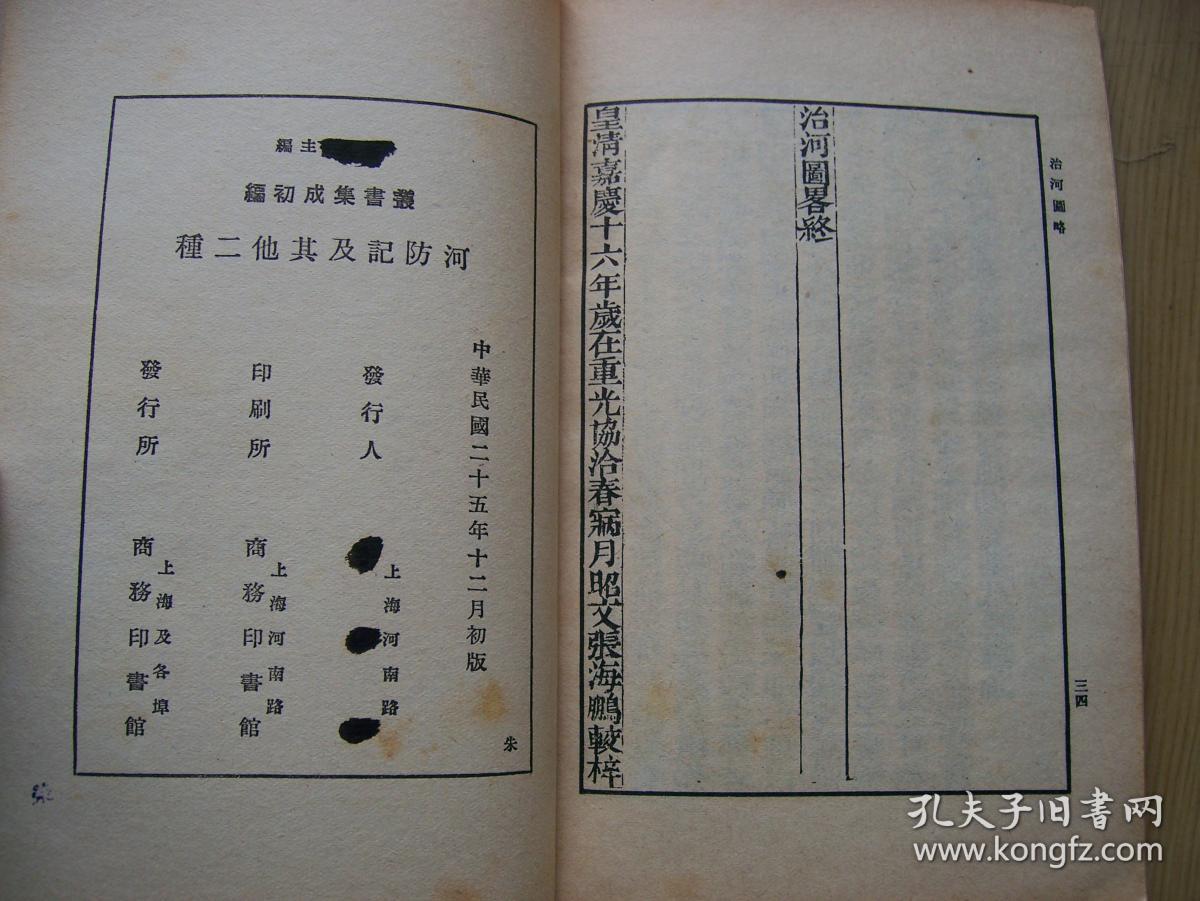 治河圖略
三四
治河圖畧終
皇清嘉慶十六年歲在重光協洽春寎月昭文張海鵬較梓
主編
叢書集成初編
河防記及其他二種
中華民國二十五年十二月初版
發行人
上海河南路
印刷所
上海河南路
商務印書館
發行所
上海及各埠
商務印書館
朱
孔夫子旧书网
www.kongfz.com